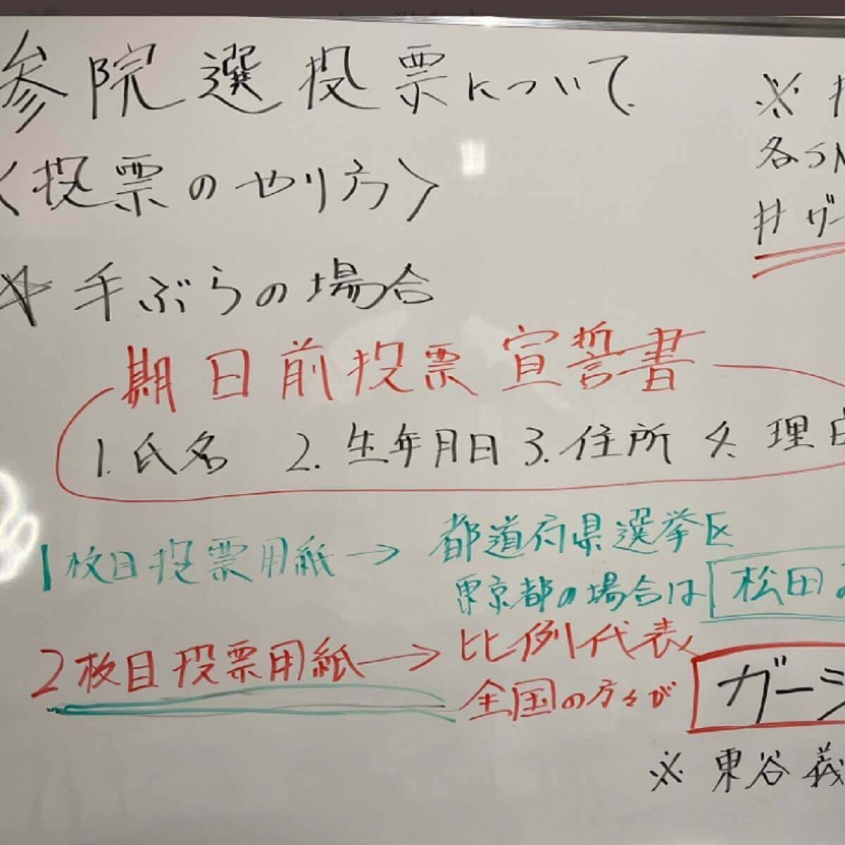 参院選投票について
〈投票のやり方〉
※
各SN
#ガー
☆手ぶらの場合
期日前投票宣誓書
1.氏名 2.生年月日 3.住所 4.理由
1枚目投票用紙→都道府県選挙区
東京都の場合は 松田
2枚目投票用紙→比例代表
全国の方々が ガーシ
※東谷義